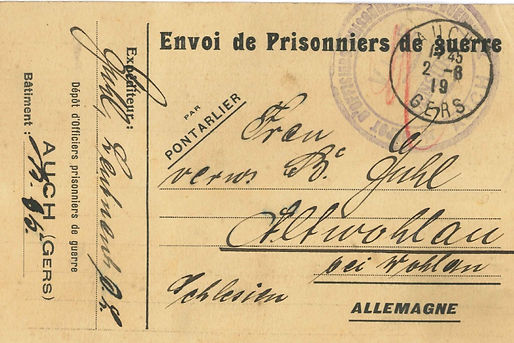 Envoi de Prisonniers de guerre
PAR
PONTARLIER
Frau
verw. B. Guhl
Altwohlau
bei Wohlau
Schlesien
ALLEMAGNE
AUCH
17 45
2 - 8
19
GERS
Expéditeur:
Guhl, Leutnant
Dépôt d'Officiers prisonniers de guerre
AUCH (GERS)
Bâtiment :